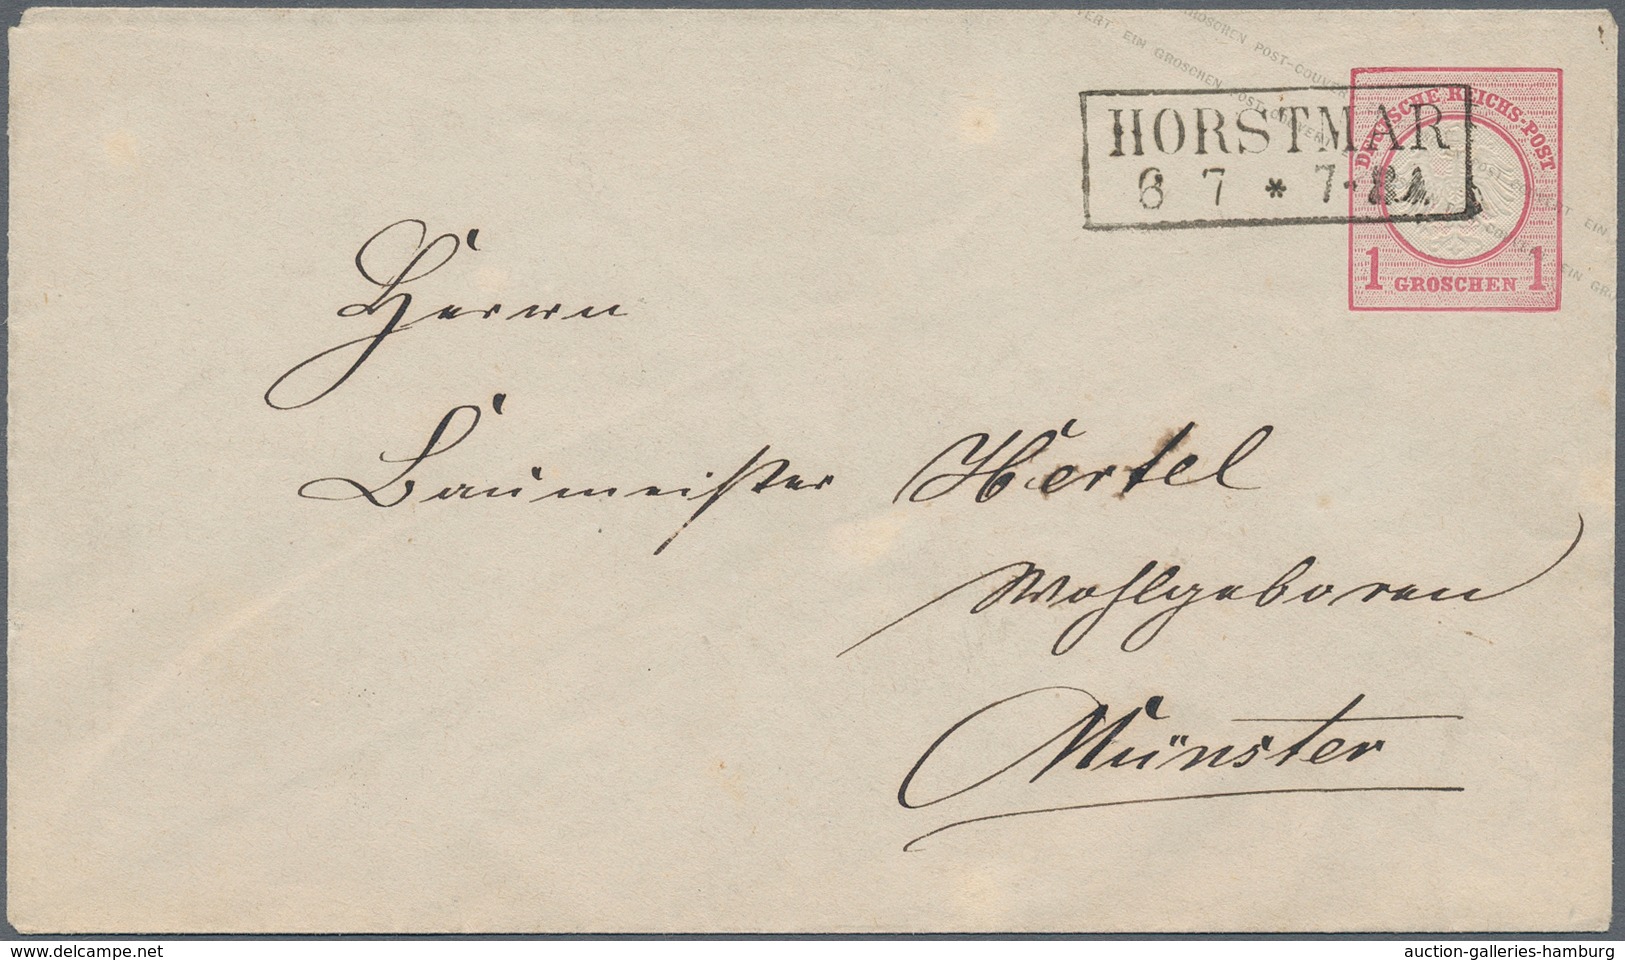 EIN GROSCHEN POST-COUVERT
GROSCHEN POST-COUVERT
HORSTMAR
6 7 * 7-8 A.
DEUTSCHE REICHS-POST
1 GROSCHEN 1
Herrn
Baumeister Hertel
Wohlgeboren
Münster
delcampe.net
auction-galleries-hamburg